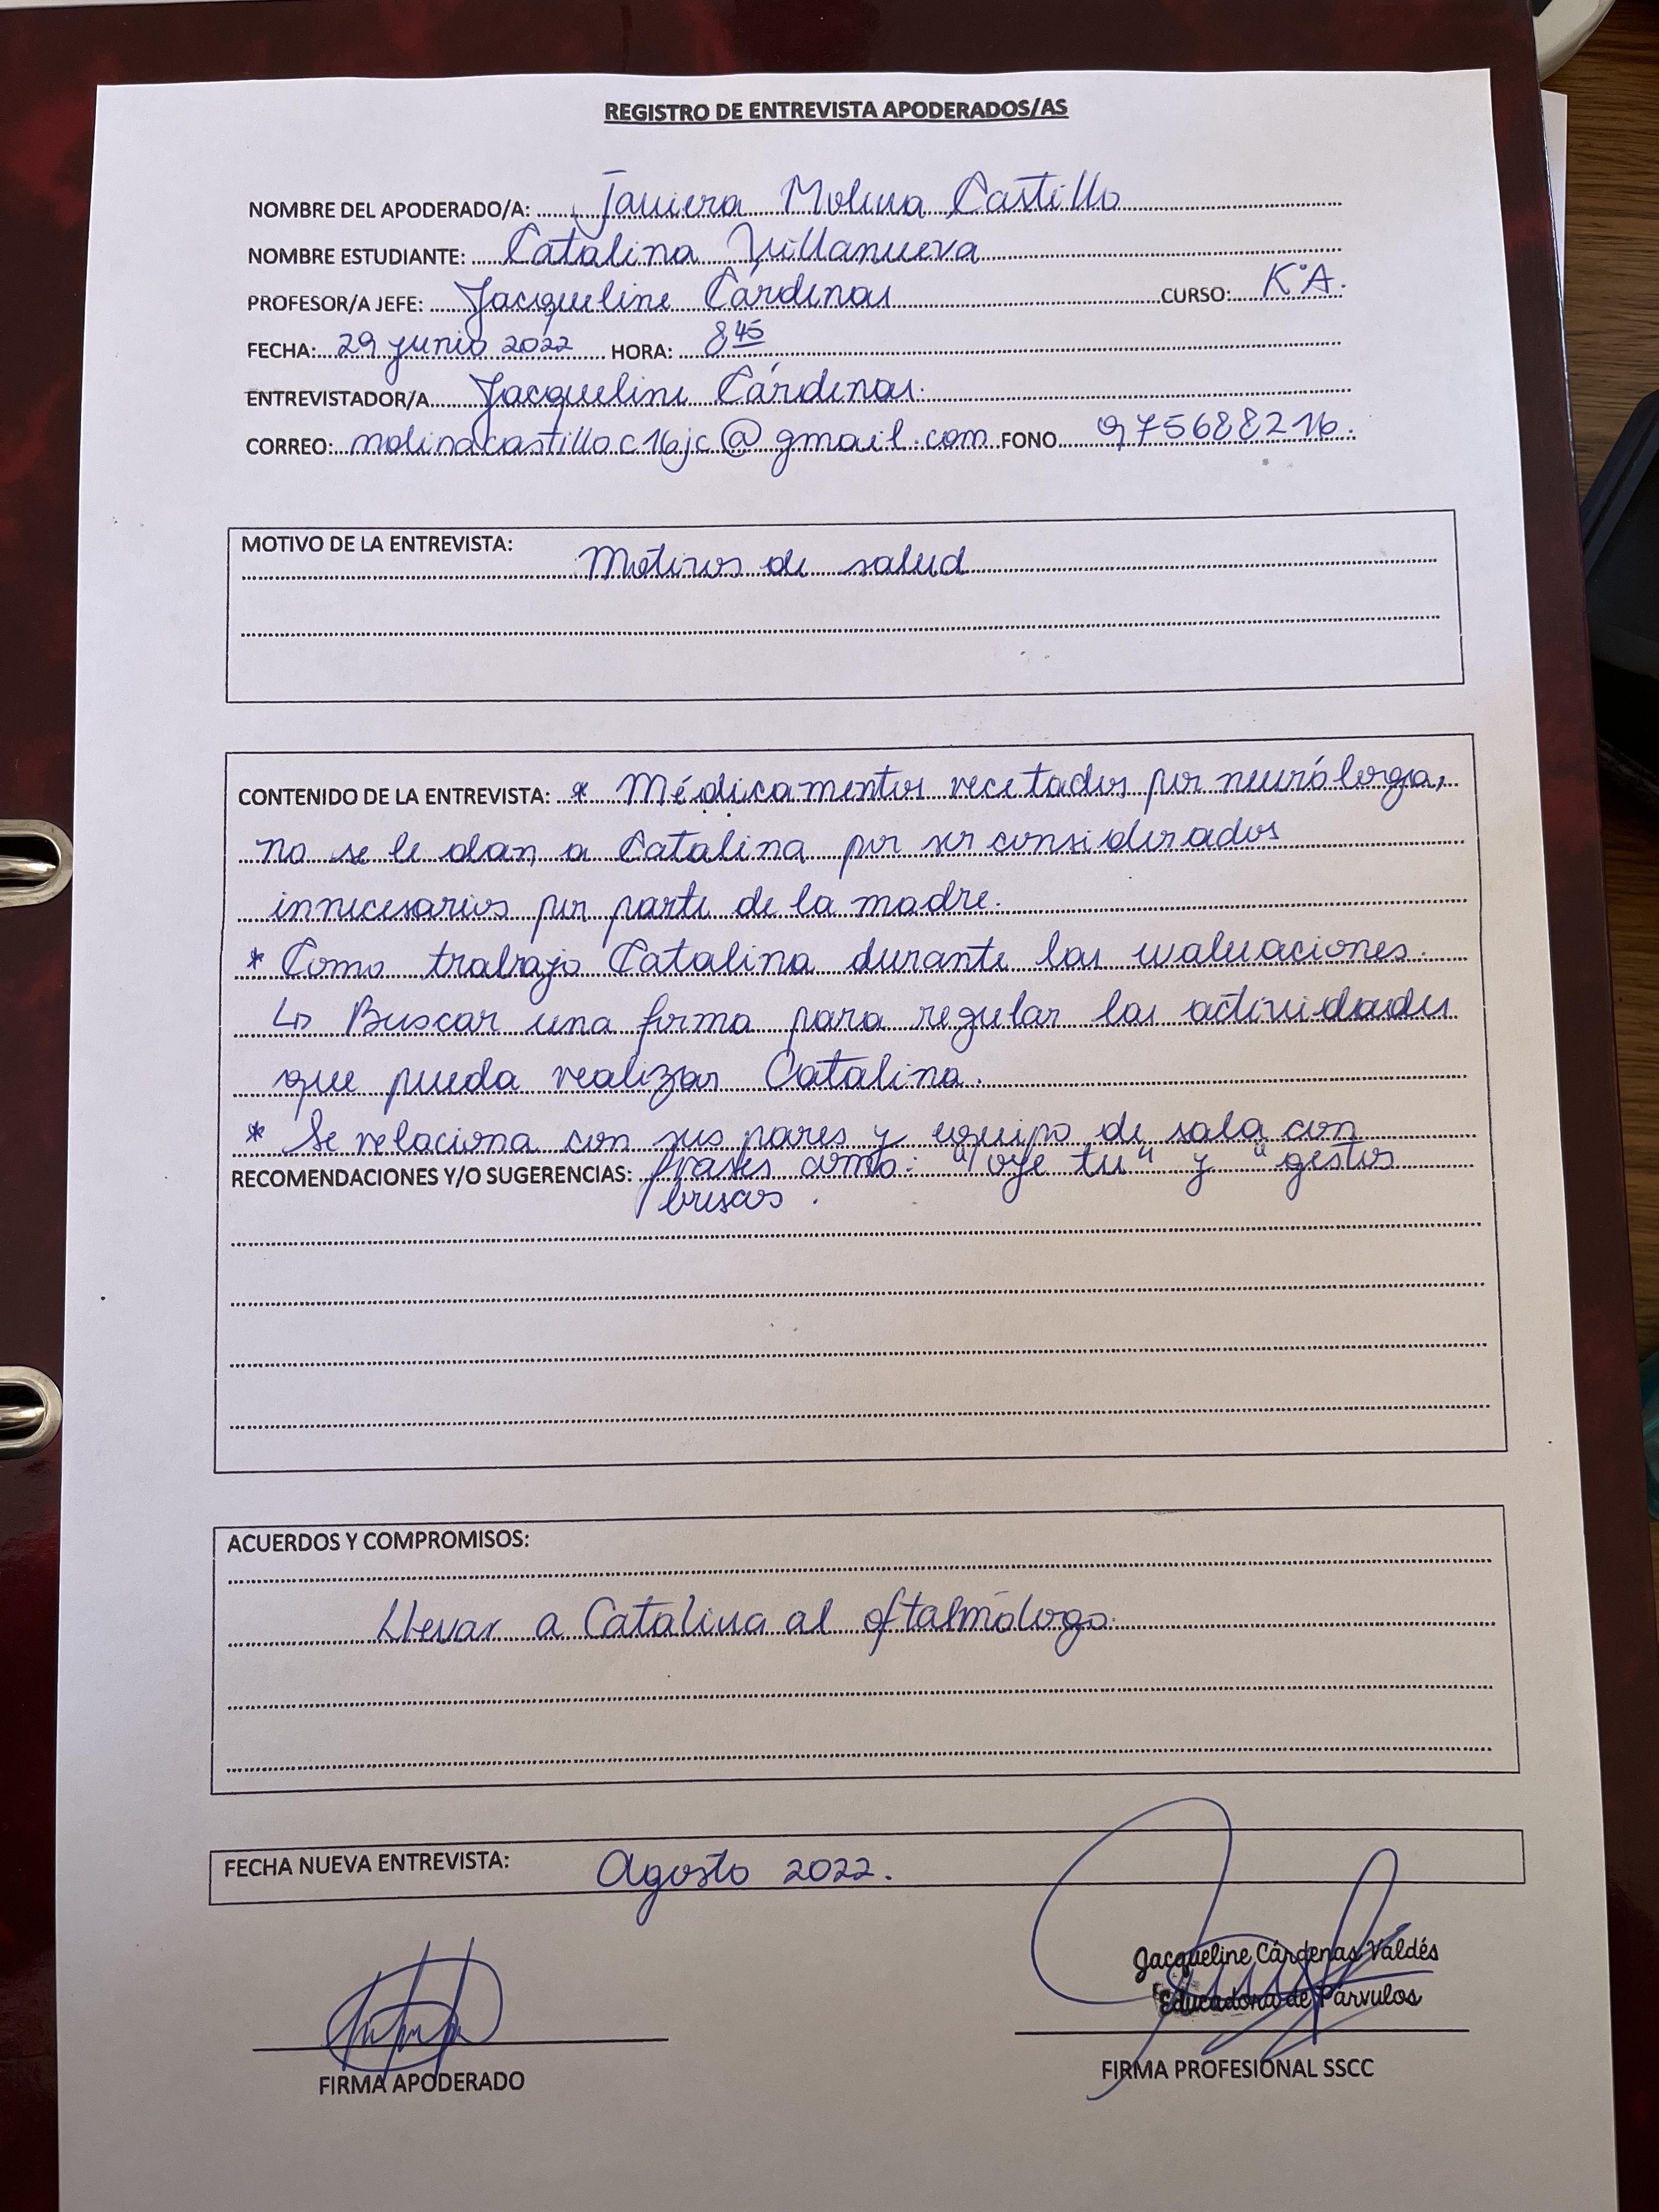 REGISTRO DE ENTREVISTA APODERADOS/AS
NOMBRE DEL APODERADO/A: Javiera Molina Castillo
NOMBRE ESTUDIANTE: Catalina Villanueva
PROFESOR/A JEFE: Jacqueline Cárdenas CURSO: K°A.
FECHA: 29 junio 2022 HORA: 8 45
ENTREVISTADOR/A Jacqueline Cárdenas.
CORREO: molinacastilloc16jc@gmail.com FONO 975688216.
MOTIVO DE LA ENTREVISTA:
Motivos de salud
CONTENIDO DE LA ENTREVISTA: * Médicamentos recetados por neuróloga,
no se le dan a Catalina por ser considerados
innecesarios por parte de la madre.
* Como trabajo Catalina durante las evaluaciones.
↳ Buscar una forma para regular las actividades
que pueda realizar Catalina.
* Se relaciona con sus pares y equipo de sala con
RECOMENDACIONES Y/O SUGERENCIAS: frases como: "oye tu" y "gestos
bruscos.
ACUERDOS Y COMPROMISOS:
Llevar a Catalina al oftalmólogo.
FECHA NUEVA ENTREVISTA: Agosto 2022.
Jacqueline Cárdenas Valdés
Educadora de Párvulos
FIRMA APODERADO
FIRMA PROFESIONAL SSCC